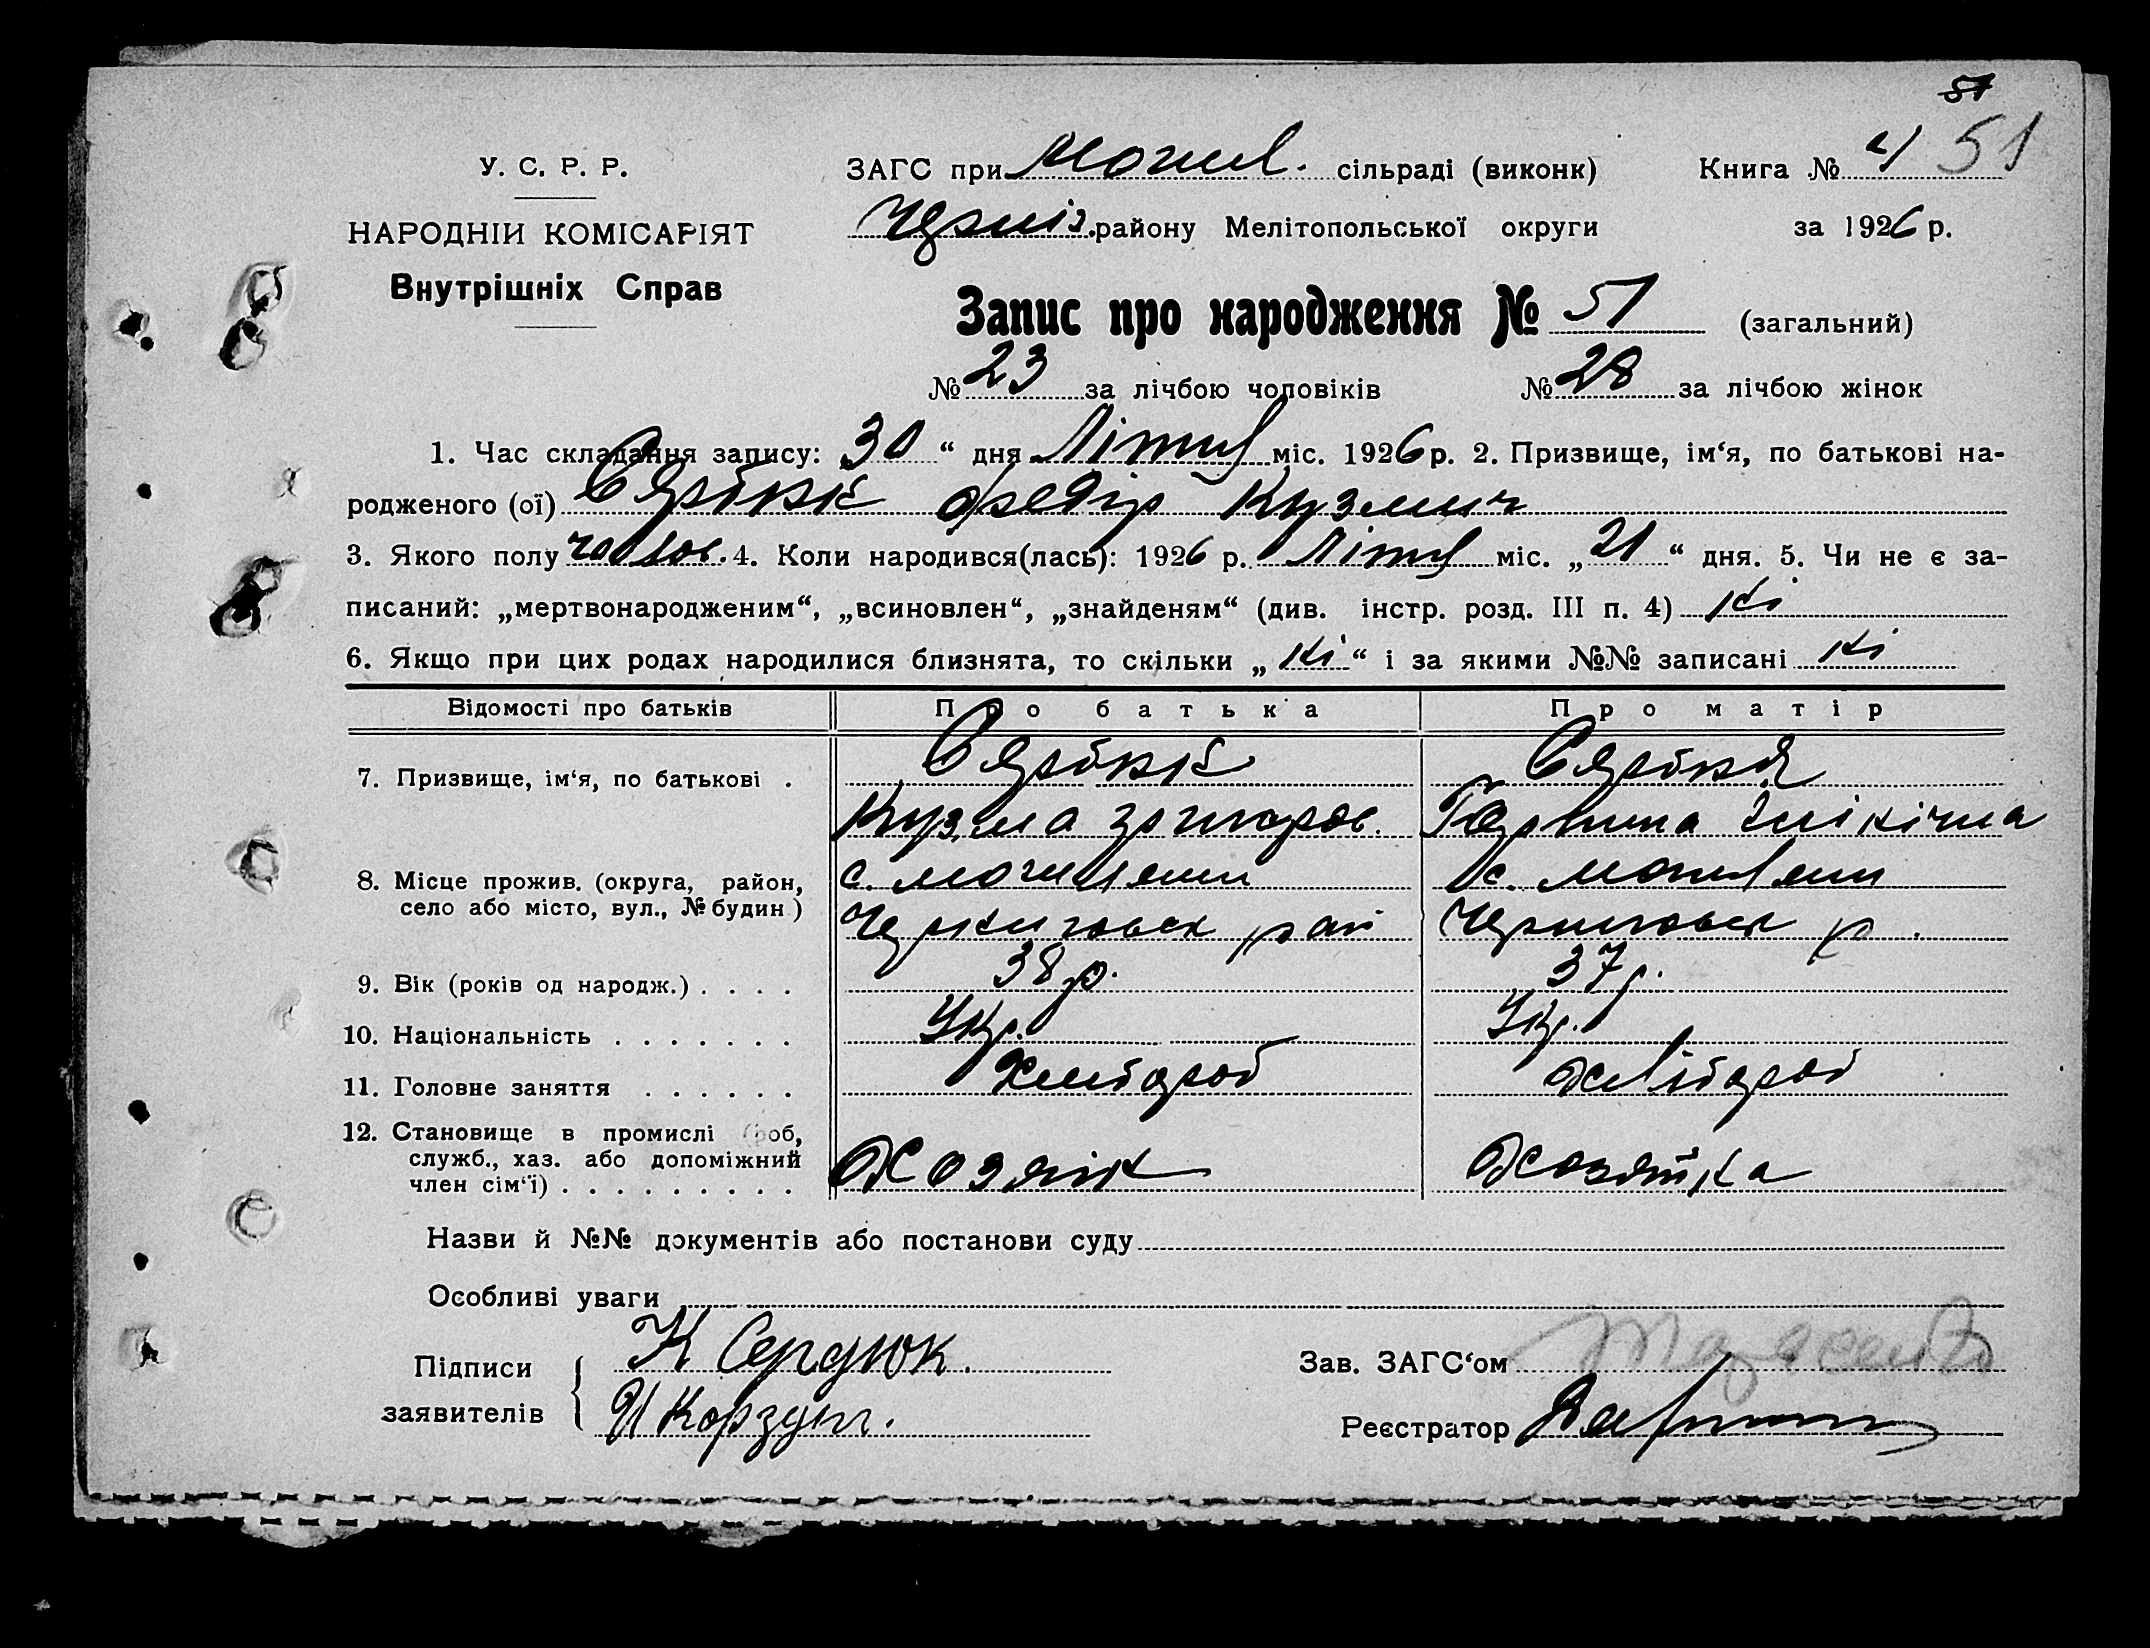 51
У. С. Р. Р.
ЗАГС при Могил. сільраді (виконк)
Книга № 4 51
НАРОДНІЙ КОМІСАРІЯТ
Черніг. району Мелітопольської округи
за 1926 р.
Внутрішніх Справ
Запис про народження № 51 (загальний)
№ 23 за лічбою чоловіків № 28 за лічбою жінок
1. Час складання запису: 30 “ дня міс. 1926 р. 2. Призвище, ім‘я, по батькові на-
родженого (ої) Федір Кузмич
3. Якого полу чолов. 4. Коли народився(лась): 1926 р. міс. „ 21 “ дня. 5. Чи не є за-
писаний: „мертвонародженим“, „всиновлен“, „знайденям“ (див. інстр. розд. III п. 4) ні
6. Якщо при цих родах народилися близнята, то скільки „ ні “ і за якими №№ записані ні
Відомості про батьків
Про батька
Про матір
7. Призвище, ім‘я, по батькові .
Кузма
8. Місце прожив. (округа, район,
село або місто, вул., № будин )
с. Могиляни
с. Могиляни
Черниговск рай
Черниговск р.
9. Вік (років од народж.) . . . .
38 р.
37 р.
10. Національність . . . . . . .
Укр.
Укр.
11. Головне заняття . . . . . .
Хлибороб
Хлібороб
12. Становище в промислі (роб,
служб., хаз. або допоміжний
член сім‘ї) . . . . . . . . .
Хозяїн
Хозяйка
Назви й №№ документів або постанови суду
Особливі уваги
Підписи
заявителів
К Сердюк.
И Корзун.
Зав. ЗАГС‘ом
Реєстратор